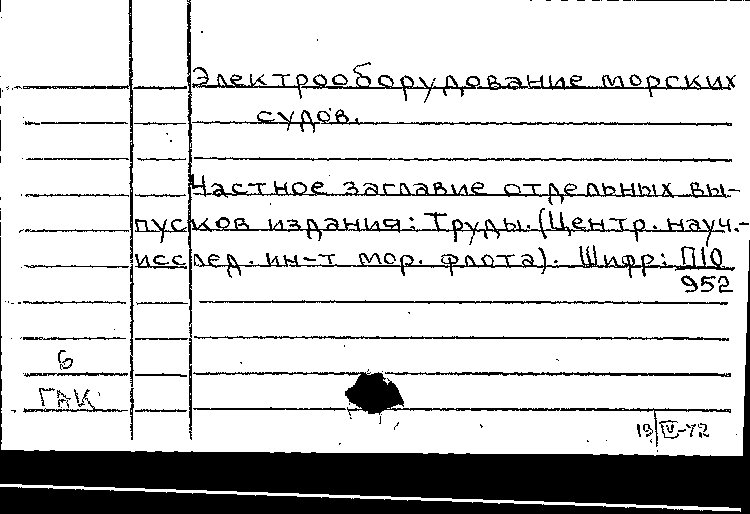 Электрооборудование морских
судов.
Частное заглавие отдельных вы-
пусков издания: Труды. (Центр. науч.-
исслед. ин-т мор. флота). Шифр: П10
952
б
ГАК
19/IV-72